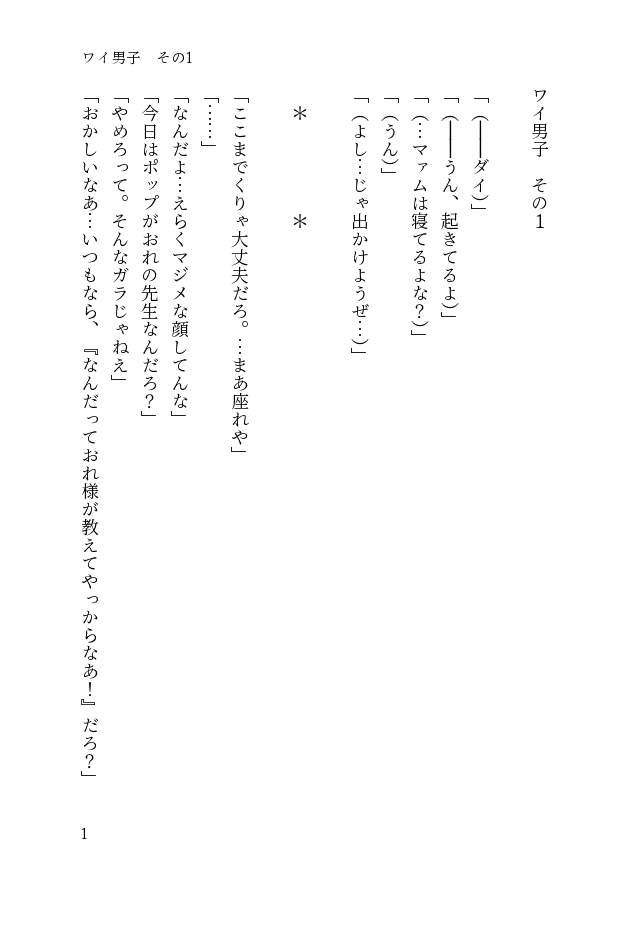 ワイ男子　その1
ワイ男子　その１
「（――ダイ）」
「（――うん、起きてるよ）」
「（…マァムは寝てるよな？）」
「（うん）」
「（よし…じゃ出かけようぜ…）」
＊　　　　　＊
「ここまでくりゃ大丈夫だろ。…まあ座れや」
「……」
「なんだよ…えらくマジメな顔してんな」
「今日はポップがおれの先生なんだろ？」
「やめろって。そんなガラじゃねえ」
「おかしいなあ…いつもなら、『なんだっておれ様が教えてやっからなあ！』だろ？」
1